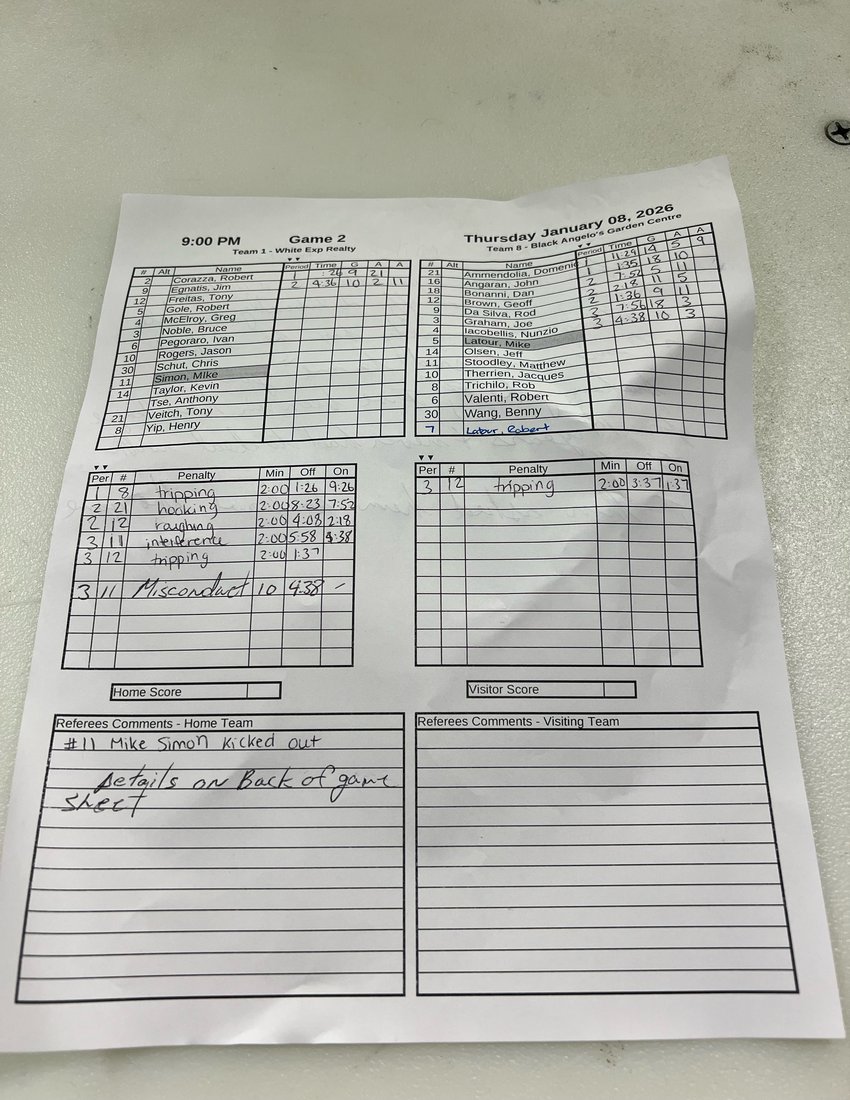 9:00 PM Game 2 Thursday January 08, 2026
Team 1 - White Exp Realty
Team 8 - Black Angelo's Garden Centre
# Alt Name Period Time G A A
2 Corazza, Robert 1 :26 9 21
9 Egnatis, Jim 2 4:36 10 2 11
12 Freitas, Tony
5 Gole, Robert
4 McElroy, Greg
3 Noble, Bruce
6 Pegoraro, Ivan
10 Rogers, Jason
30 Schut, Chris
11 Simon, MIke
14 Taylor, Kevin
Tse, Anthony
21 Veitch, Tony
8 Yip, Henry
# Alt Name Period Time G A A
21 Ammendolia, Domenic 1 11:29 14 5 9
16 Angaran, John 1 1:35 18 10
18 Bonanni, Dan 2 7:52 5 11
12 Brown, Geoff 2 2:18 11 5
9 Da Silva, Rod 2 1:36 9 11
3 Graham, Joe 3 7:56 18 3
4 Iacobellis, Nunzio 3 4:38 10 3
5 Latour, Mike
14 Olsen, Jeff
11 Stoodley, Matthew
10 Therrien, Jacques
8 Trichilo, Rob
6 Valenti, Robert
30 Wang, Benny
7 Latour, Robert
Per # Penalty Min Off On
1 8 tripping 2:00 1:26 9:26
2 21 hooking 2:00 8:23 7:52
2 12 roughing 2:00 4:08 2:18
3 11 interference 2:00 5:58 4:38
3 12 tripping 2:00 1:37
3 11 Misconduct 10 4:38 -
Per # Penalty Min Off On
3 12 tripping 2:00 3:37 1:37
Home Score
Visitor Score
Referees Comments - Home Team
#11 Mike Simon Kicked out
Details on Back of game
sheet
Referees Comments - Visiting Team